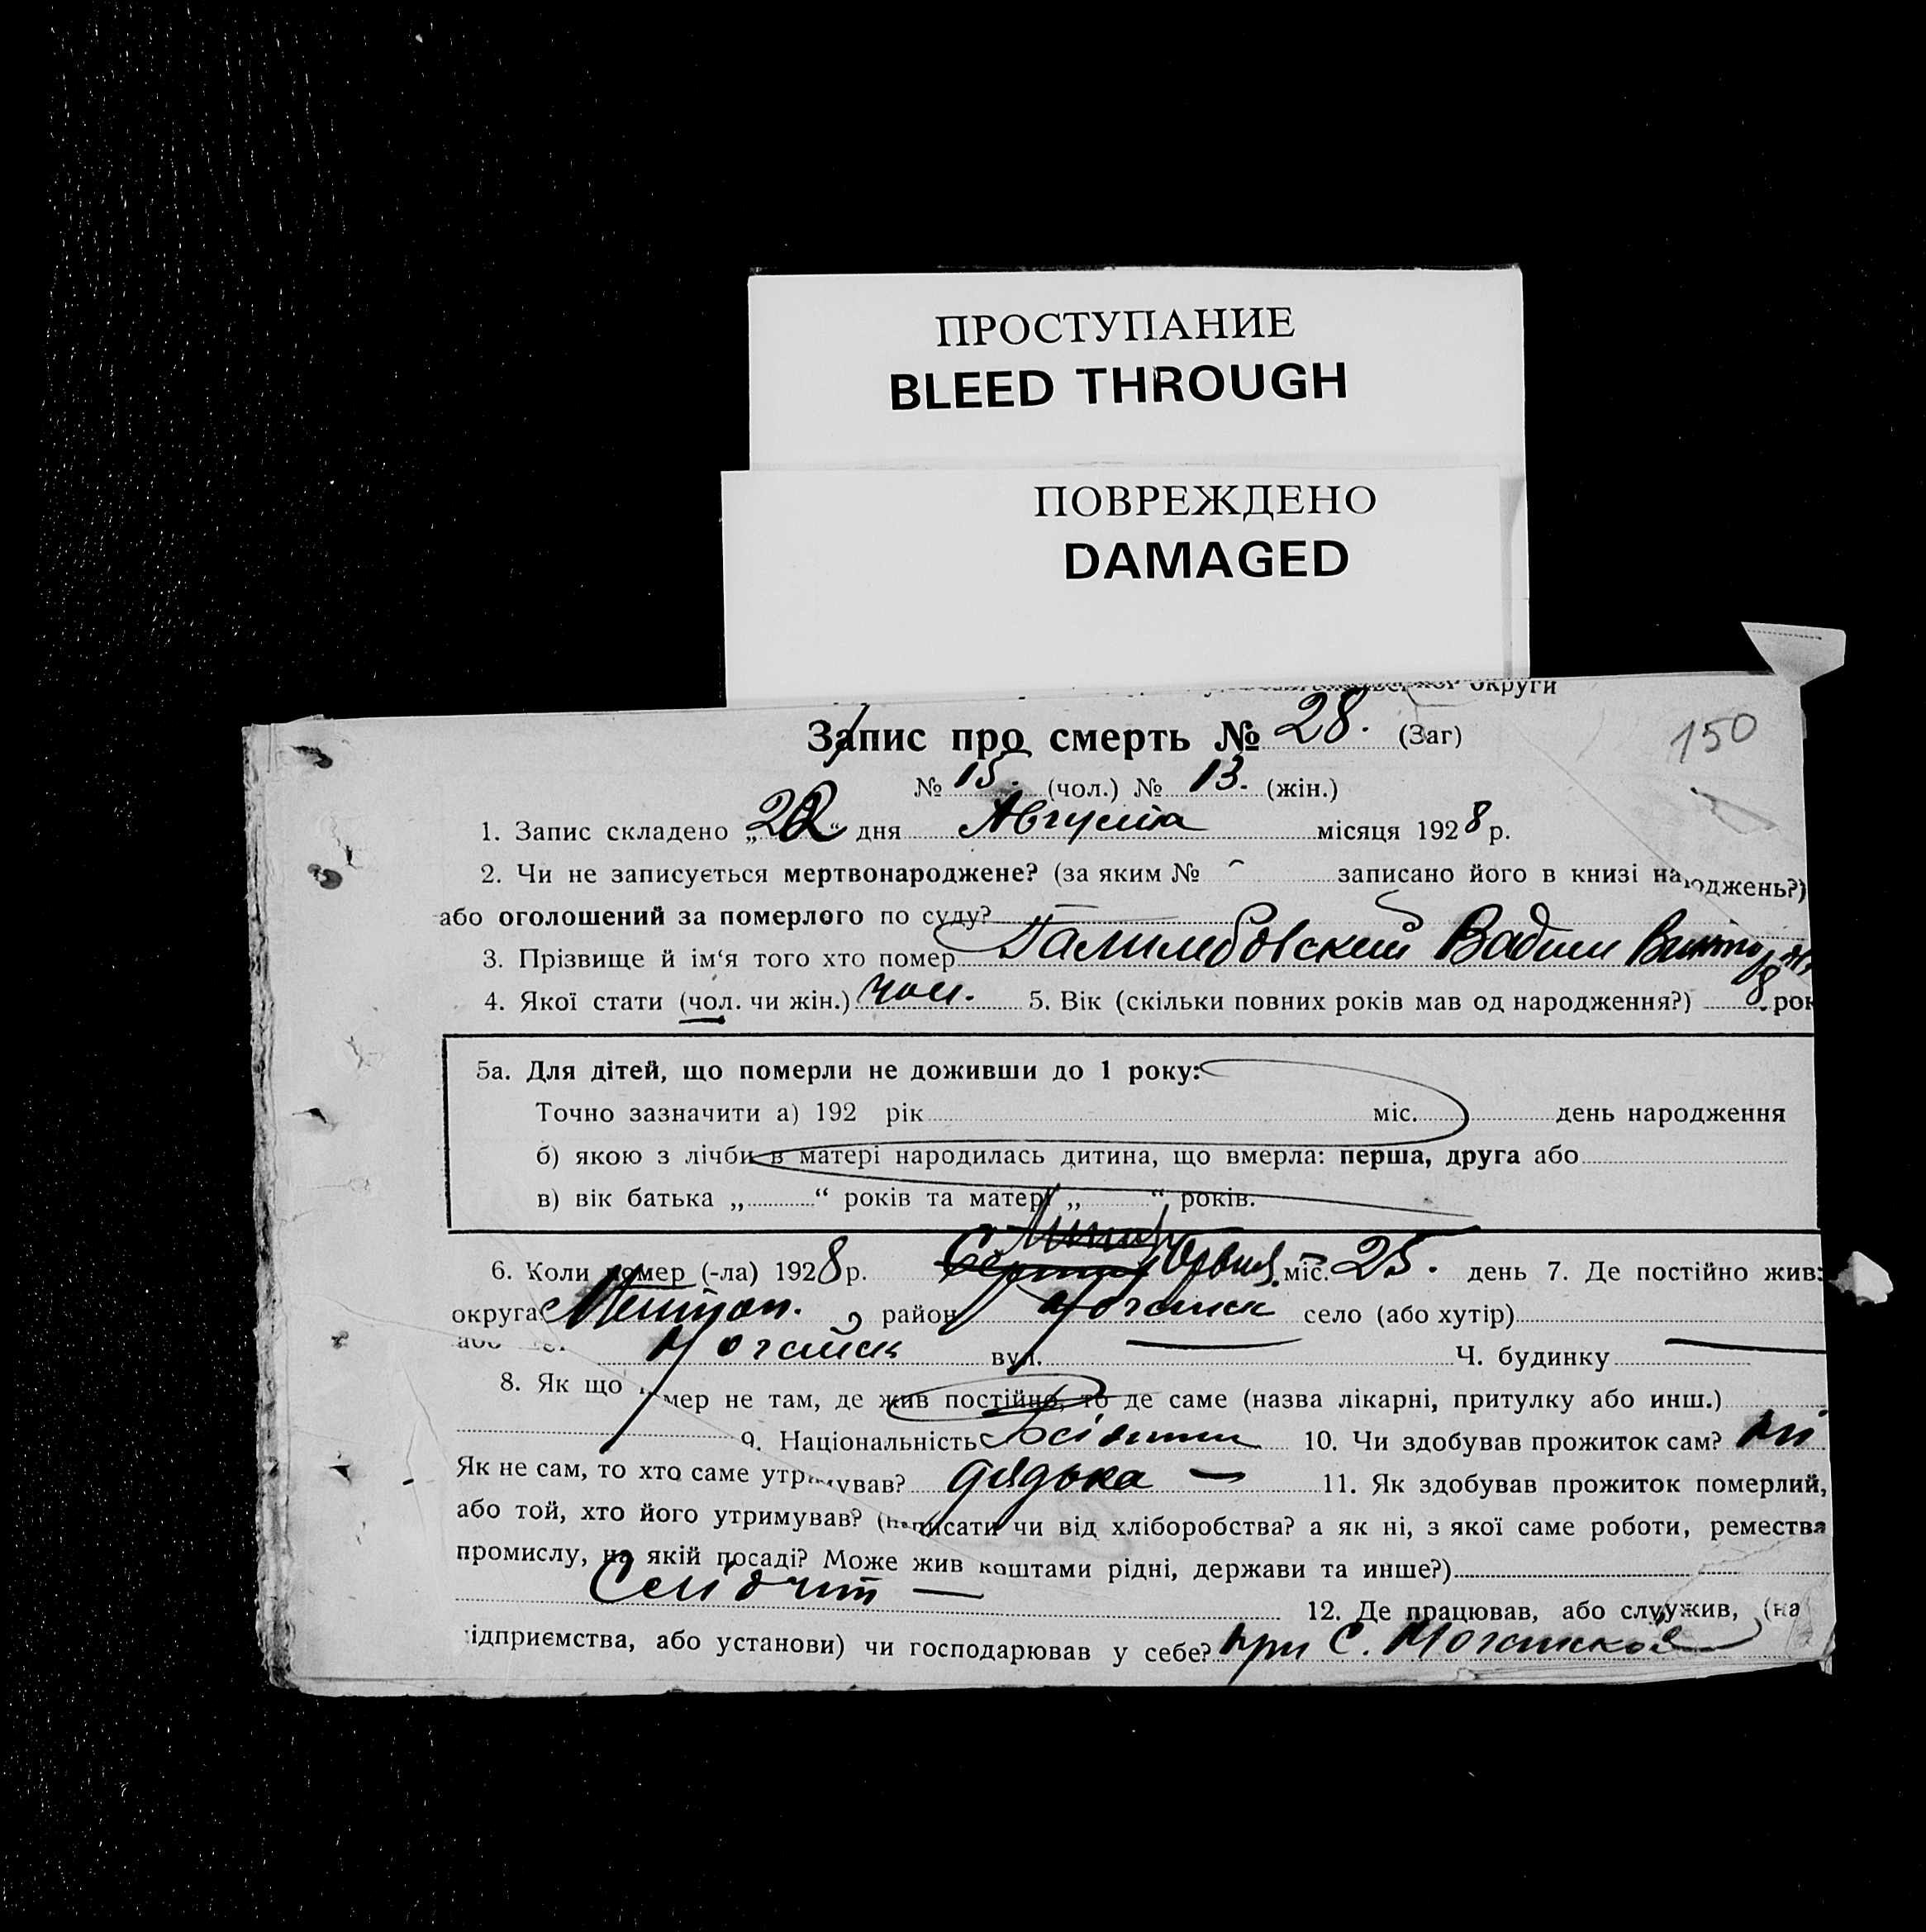 ПРОСТУПАНИЕ
BLEED THROUGH
ПОВРЕЖДЕНО
DAMAGED
округи
Запис про смерть № 28. (Заг)
150
№ 15. (чол.) № 13. (жін.)
1. Запис складено „22“ дня Августа місяця 1928 р.
2. Чи не записується мертвонароджене? (за яким № записано його в книзі народжень?)
або оголошений за померлого по суду?
3. Прізвище й ім‘я того хто помер Вадим
4. Якої стати (чол. чи жін.) чол. 5. Вік (скільки повних років мав од народження?) 8 рок
5а. Для дітей, що померли не доживши до 1 року:
Точно зазначити а) 192 рік міс. день народження
б) якою з лічби в матері народилась дитина, що вмерла: перша, друга або
в) вік батька „ “ років та матері „ “ років.
6. Коли помер (-ла) 1928 р. міс. 25. день 7. Де постійно жив:
округа Мелітоп. район Ногайск село (або хутір)
або Ногайск вул. Ч. будинку
8. Як що помер не там, де жив постійно, то де саме (назва лікарні, притулку або инш.)
9. Національність 10. Чи здобував прожиток сам? ні
Як не сам, то хто саме утримував? дядька — 11. Як здобував прожиток померлий,
або той, хто його утримував? (написати чи від хліборобства? а як ні, з якої саме роботи, ремества
промислу, на якій посаді? Може жив коштами рідні, держави та инше?)
12. Де працював, або служив, (на
ідприємства, або установи) чи господарював у себе? при С.